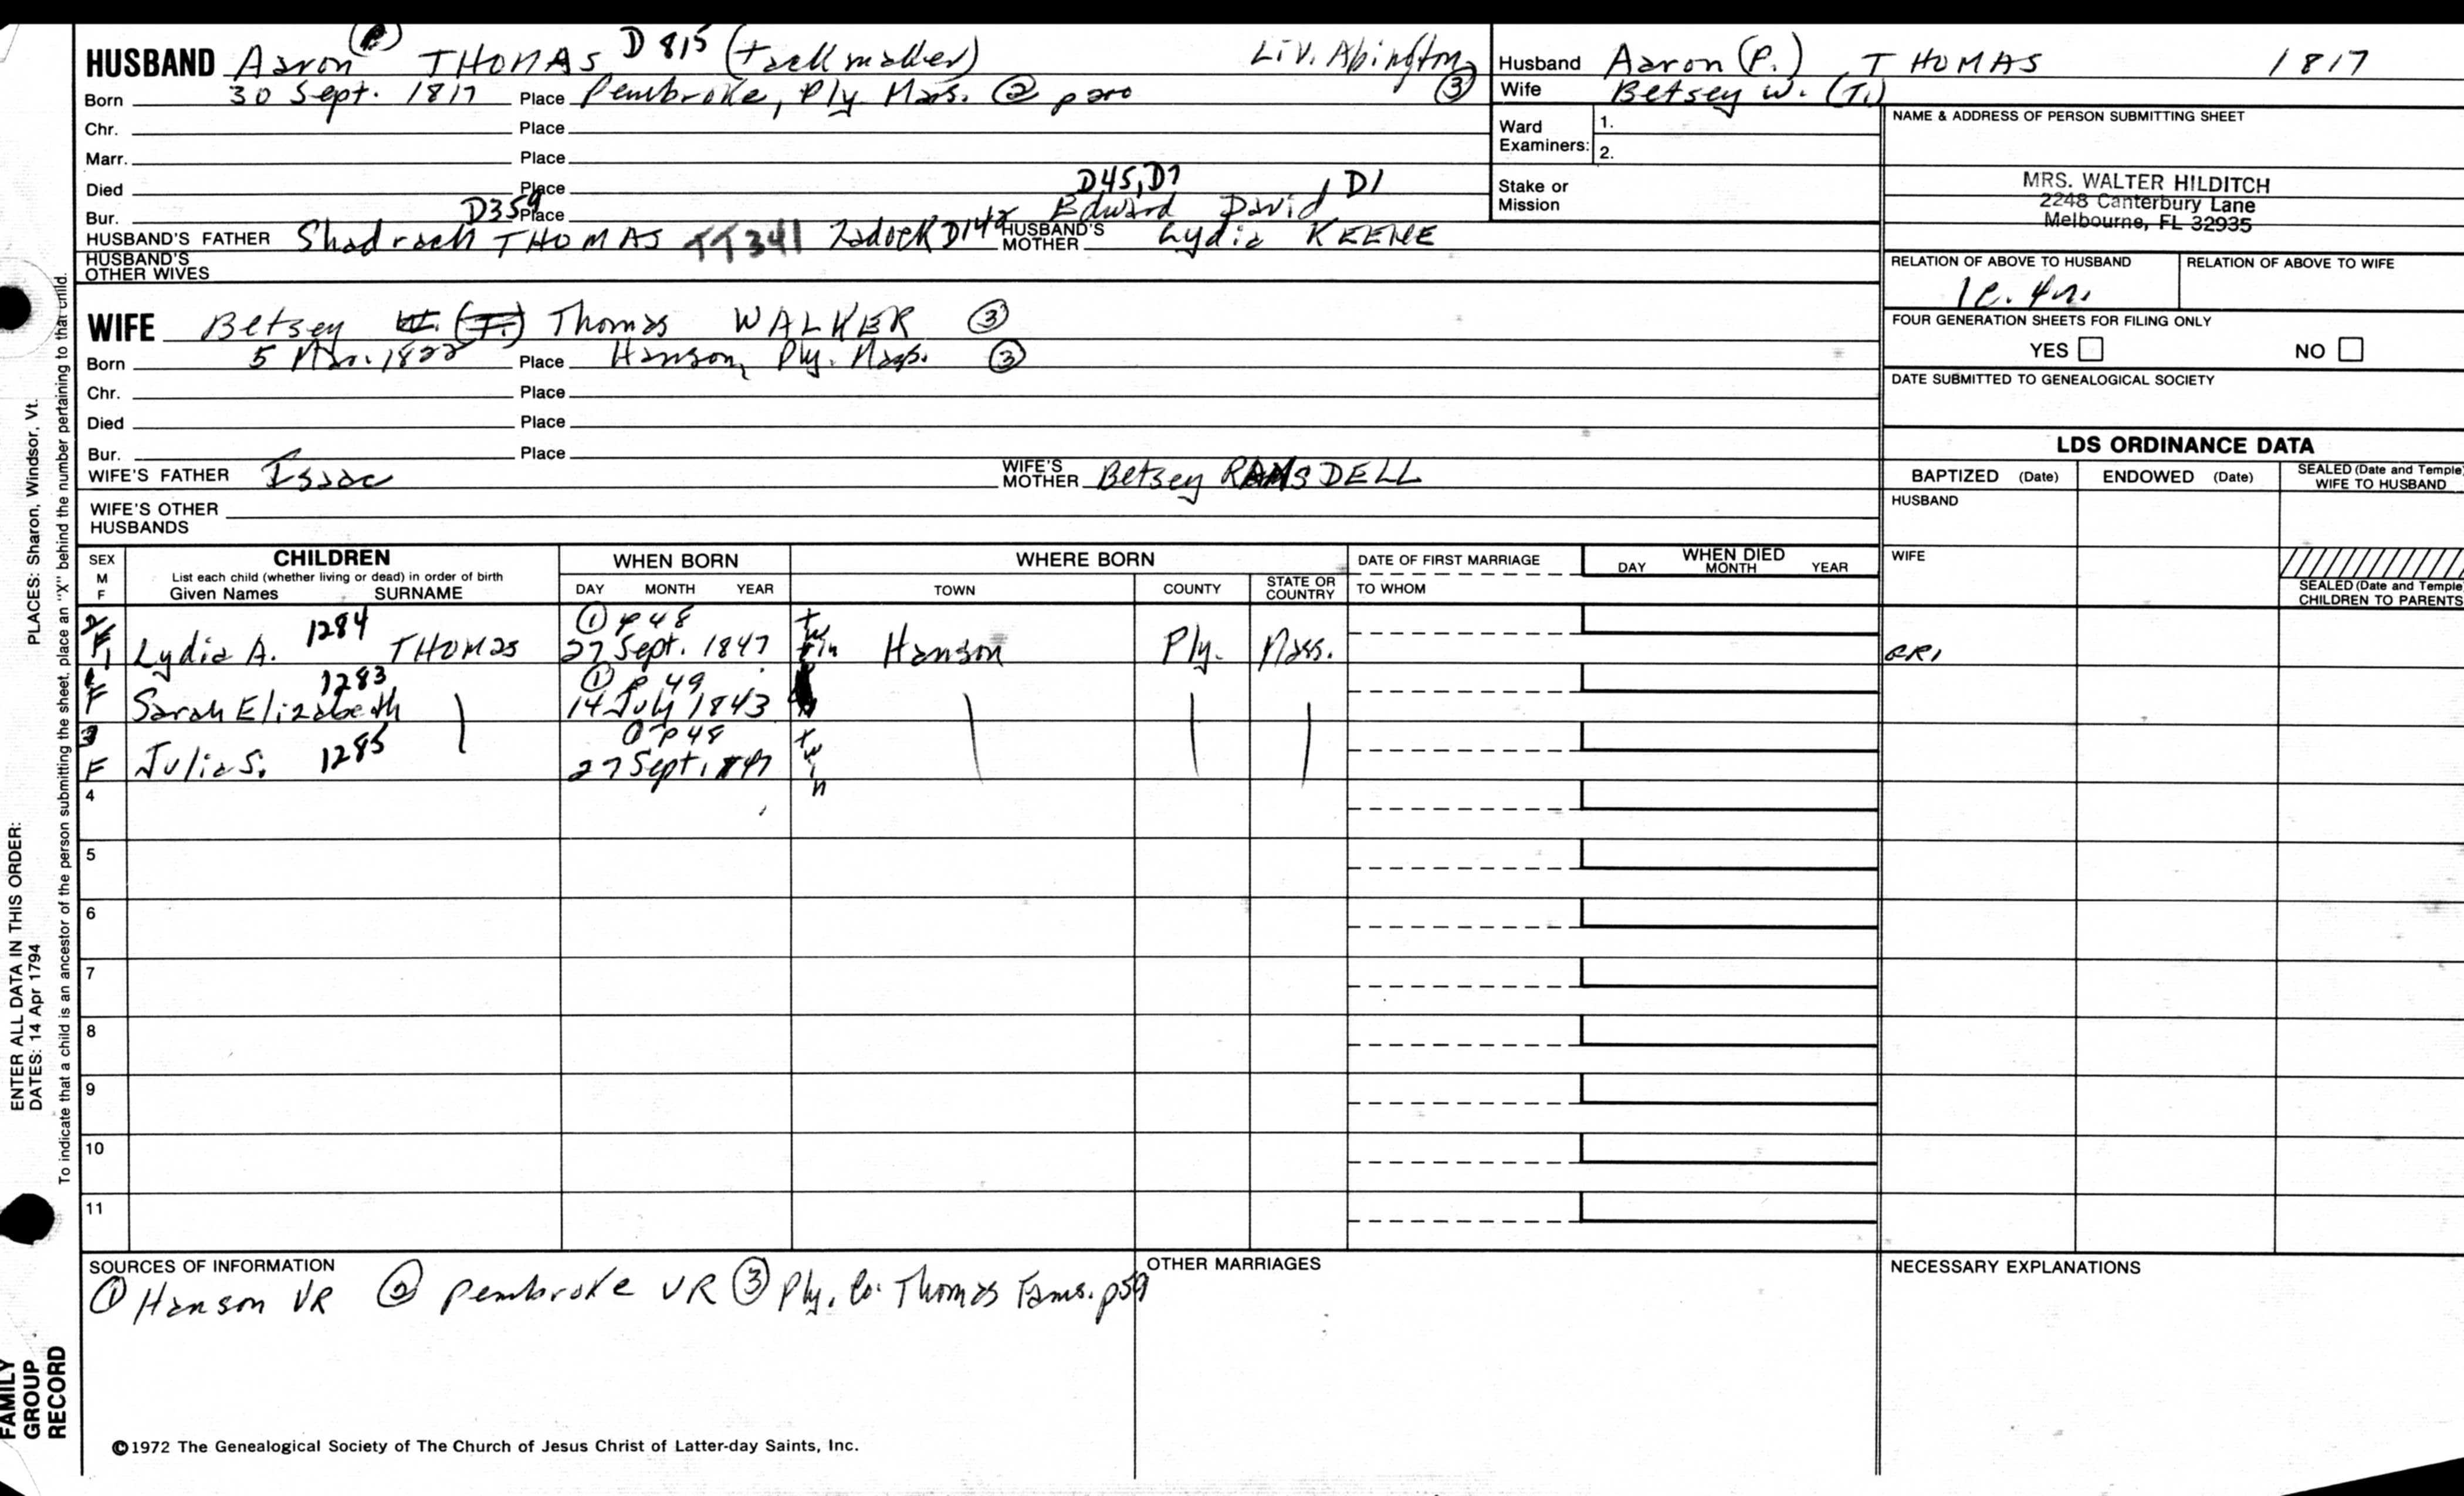 HUSBAND Aaron (P.) THOMAS D 815 (tack maker) Liv. Abington ③
Born 30 Sept. 1817 Place Pembroke, Ply. Mass. ②
Chr. Place
Marr. Place
Died Place
Bur. Place
D359 D45, D7 D1
HUSBAND'S FATHER Shadrach THOMAS TT341 Zadock D142 Edward David
HUSBAND'S MOTHER Lydia KEENE
HUSBAND'S OTHER WIVES
Husband Aaron (P.) THOMAS 1817
Wife Betsey W. (T.)
Ward Examiners: 1.
2.
Stake or Mission
NAME & ADDRESS OF PERSON SUBMITTING SHEET
MRS. WALTER HILDITCH
2248 Canterbury Lane
Melbourne, FL 32935
RELATION OF ABOVE TO HUSBAND RELATION OF ABOVE TO WIFE
1c. 4r.
FOUR GENERATION SHEETS FOR FILING ONLY
YES NO
DATE SUBMITTED TO GENEALOGICAL SOCIETY
WIFE Betsey W. (T.) Thomas WALKER ③
Born 5 Mar. 1822 Place Hanson, Ply. Mass. ③
Chr. Place
Died Place
Bur. Place
WIFE'S FATHER Isaac WIFE'S MOTHER Betsey RAMSDELL
WIFE'S OTHER HUSBANDS
LDS ORDINANCE DATA
BAPTIZED (Date) ENDOWED (Date) SEALED (Date and Temple) WIFE TO HUSBAND
HUSBAND
WIFE
SEALED (Date and Temple) CHILDREN TO PARENTS
SEX M F
CHILDREN
List each child (whether living or dead) in order of birth
Given Names SURNAME
WHEN BORN
DAY MONTH YEAR
WHERE BORN
TOWN COUNTY STATE OR COUNTRY
DATE OF FIRST MARRIAGE
TO WHOM
WHEN DIED
DAY MONTH YEAR
2 F 1 Lydia A. 1284 THOMAS ① p 48 27 Sept. 1847 twin Hanson Ply. Mass.
1 F Sarah Elizabeth 1283 ① p 49 14 July 1843
3 F Julia S. 1285 ① p 48 27 Sept. 1847 twin
4
5
6
7
8
9
10
11
SOURCES OF INFORMATION
① Hanson VR ② Pembroke VR ③ Ply. Co. Thomas Fams. p59
OTHER MARRIAGES
NECESSARY EXPLANATIONS
©1972 The Genealogical Society of The Church of Jesus Christ of Latter-day Saints, Inc.
FAMILY GROUP RECORD
ENTER ALL DATA IN THIS ORDER:
DATES: 14 Apr 1794
PLACES: Sharon, Windsor, Vt.
To indicate that a child is an ancestor of the person submitting the sheet, place an "X" behind the number pertaining to that child.